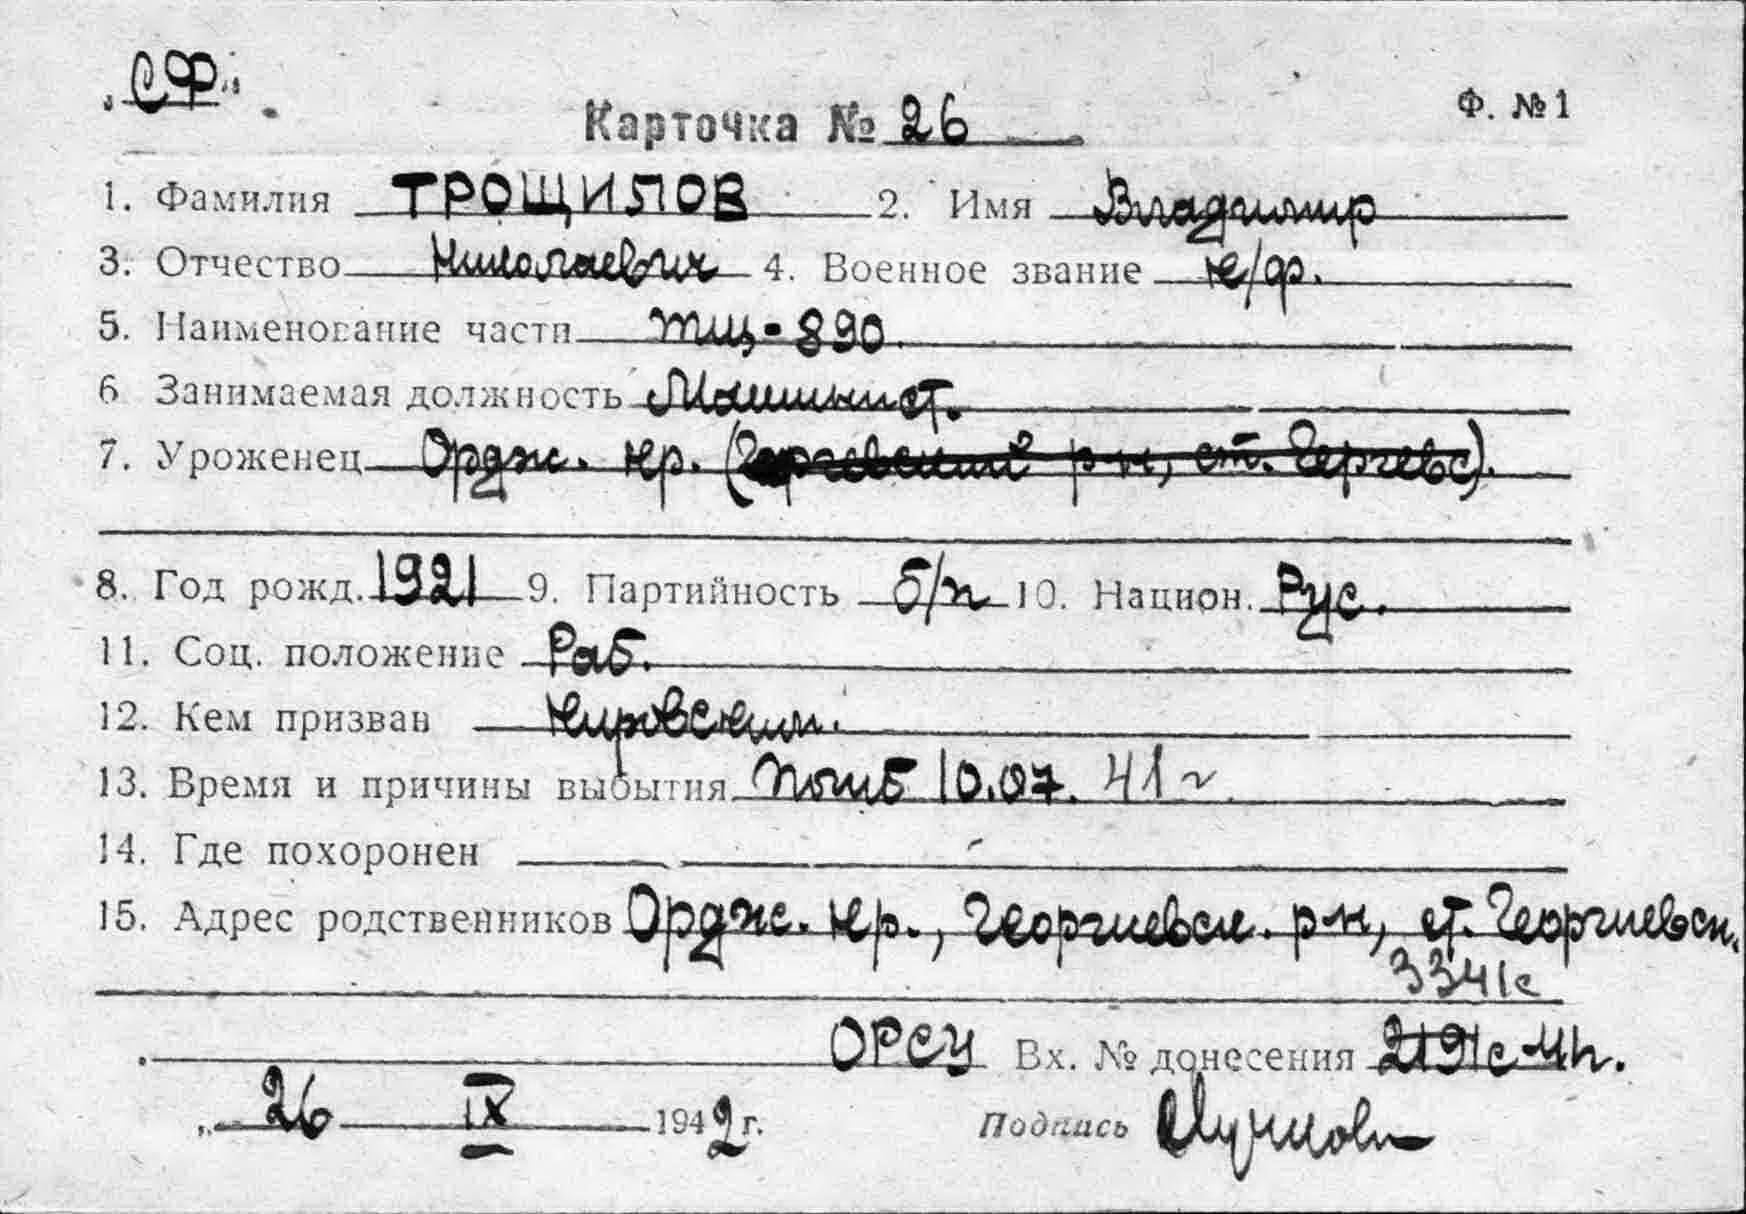 „СФ“
Карточка № 26
Ф. № 1
1. Фамилия ТРОЩИЛОВ 2. Имя Владимир
3. Отчество Николаевич 4. Военное звание к/ф.
5. Наименование части тщ-890.
6 Занимаемая должность Машинист.
7. Уроженец Ордж. кр. (Георгиевский р-н, ст. Георгиевс).
8. Год рожд. 1921 9. Партийность б/п 10. Национ. Рус.
11. Соц. положение Раб.
12. Кем призван Кировским.
13. Время и причины выбытия Погиб 10.07. 41 г
14. Где похоронен
15. Адрес родственников Ордж. кр., Георгиевск. р-н, ст. Георгиевск.
3341с
ОРСУ Вх. № донесения 2191с
„ 26 IX 1942 г. Подпись